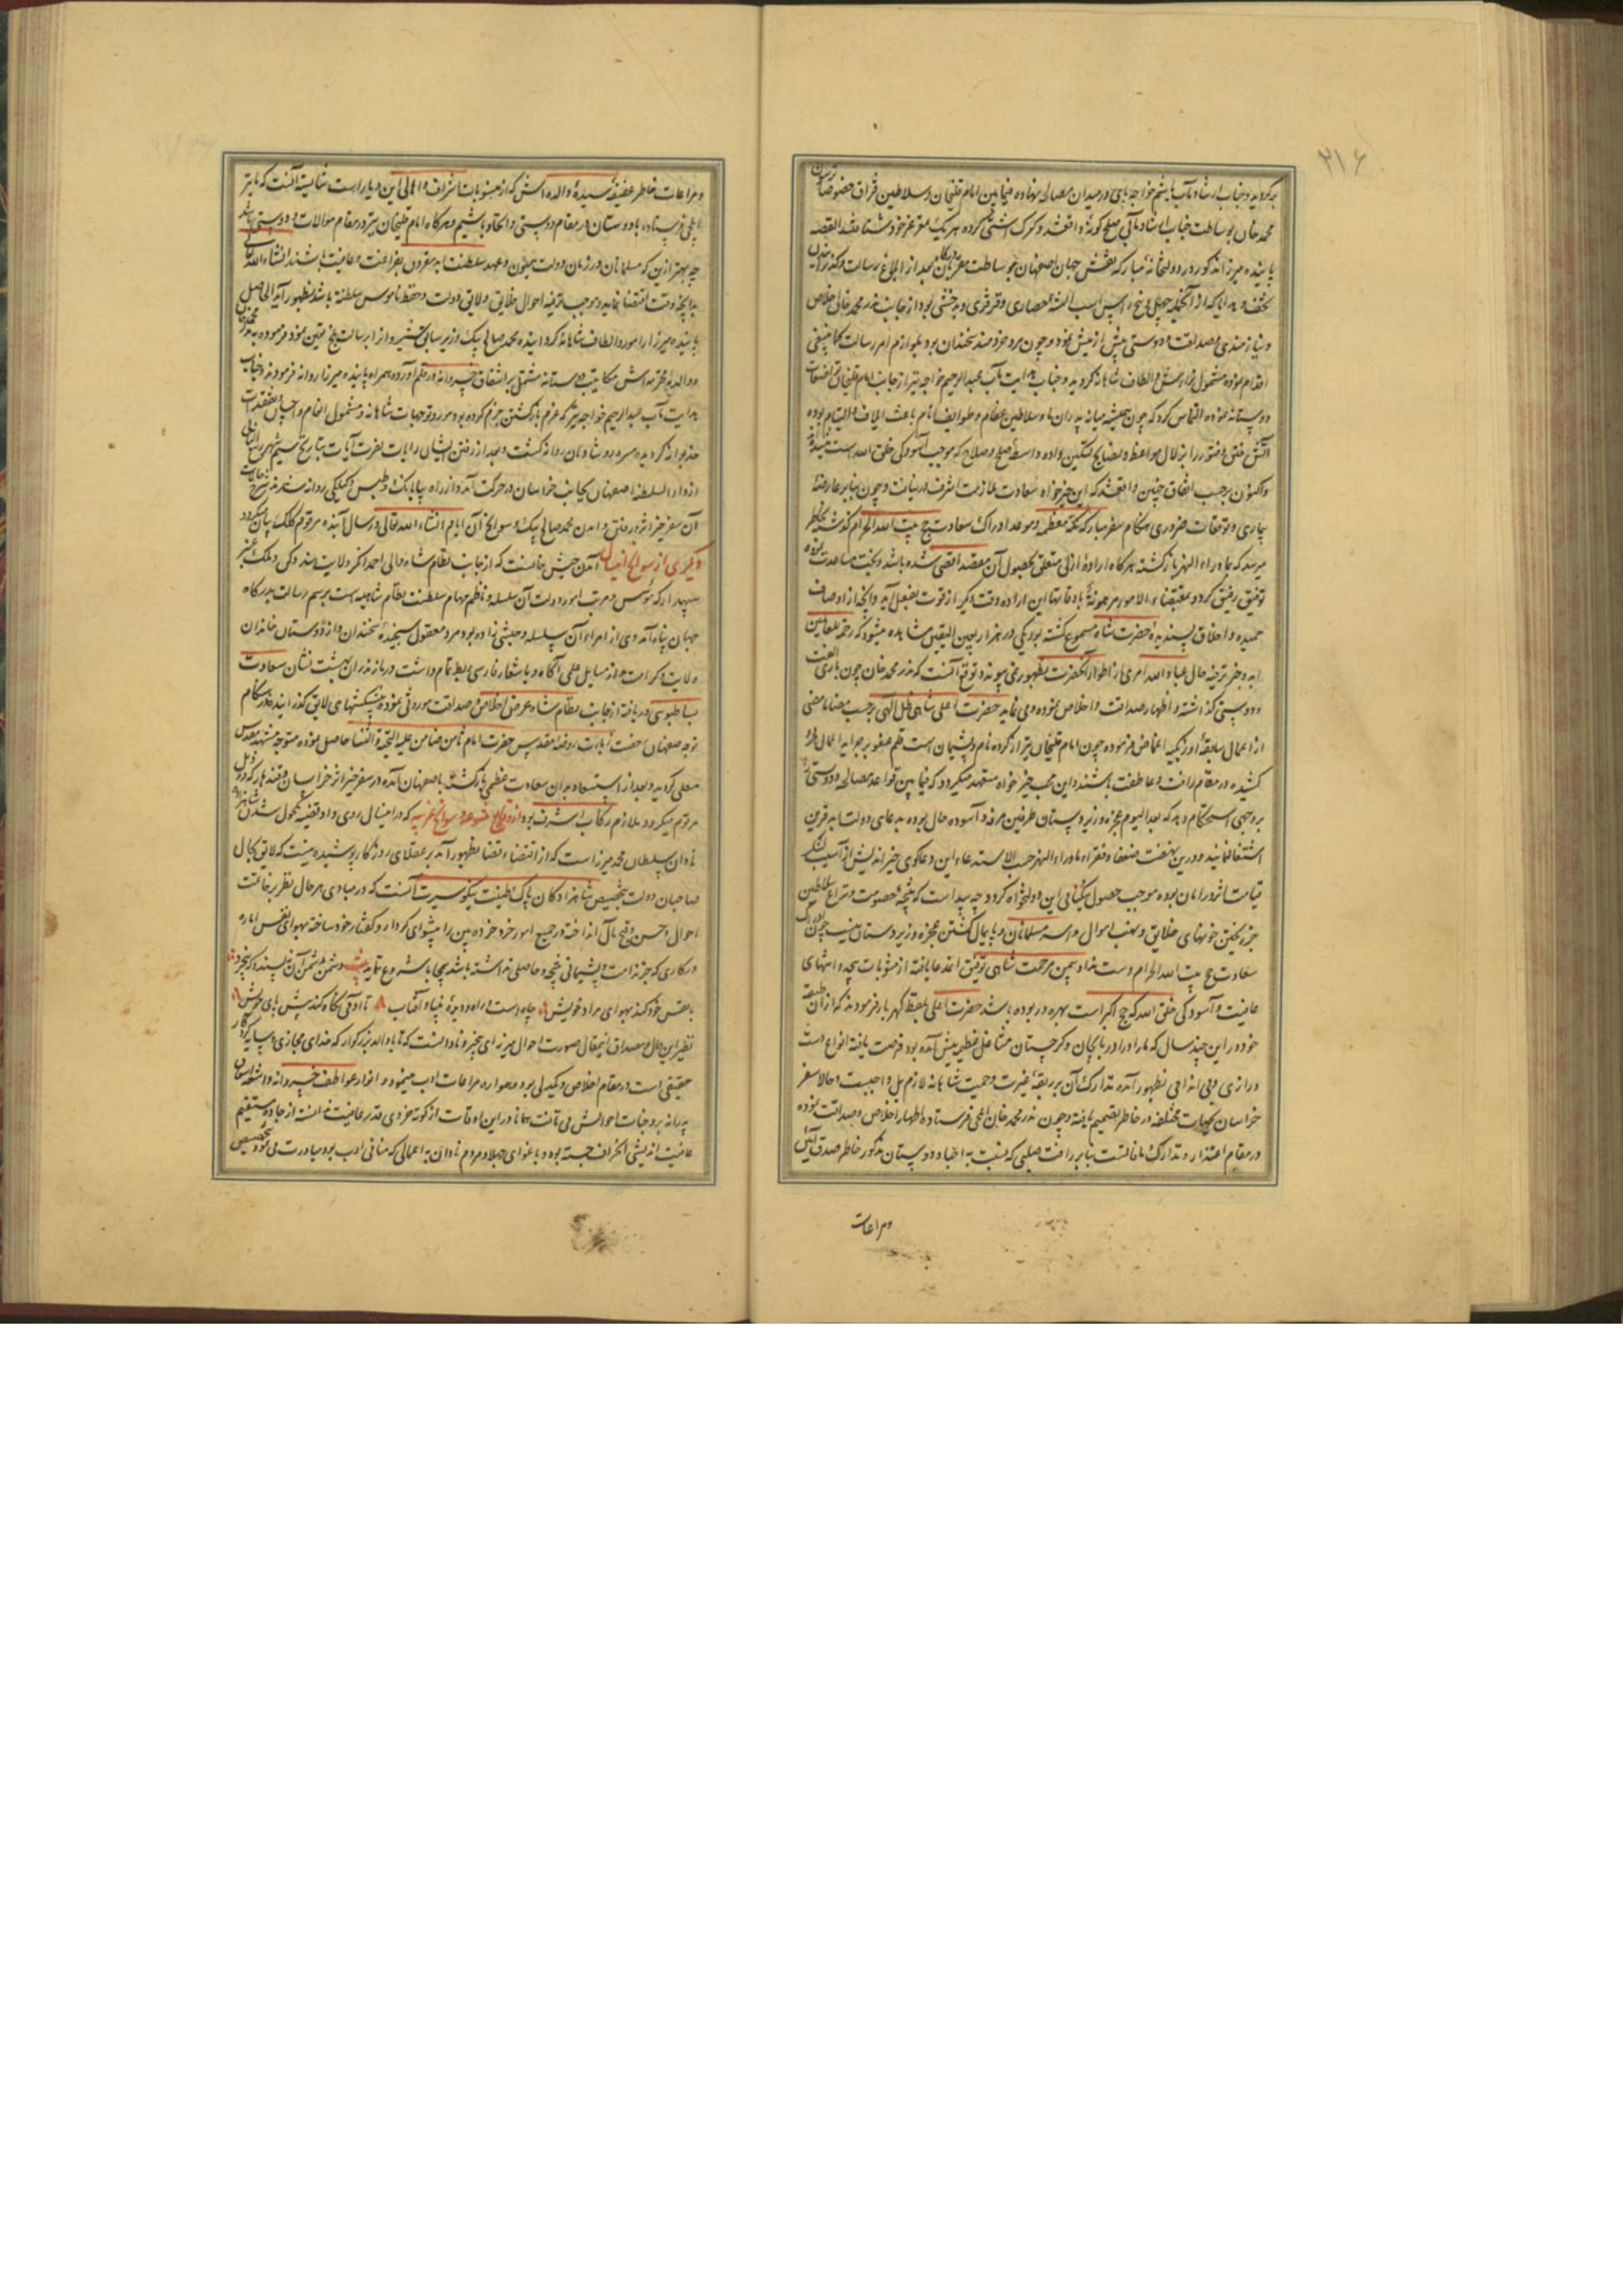 ۲۱۶
محمد خان بوساطت جناب ارشاد مآبی صلح گونهٔ واقع شد و کرک آشتی کرده هر یک بمقر عز خود شتافتند القصه
پاینده میرزا مذکور در دولتخانه مبارکه نقش جهان اصفهان بوساطت مقربان بعد از ابلاغ رسالت و گذرانیدن
و نیازمندی و صداقت و دوستی بیش از پیش نمود و چون مرد خردمند سخندان بود بلوازم امر رسالت کما ینبغی
اقدام نموده مشمول نوازش و الطاف شاهانه گردید و جناب هدایت مآب عبدالرحیم خواجه نیز از جانب امام قلیخان
دوستانه نموده التماس کرد که چون همیشه میانه پدران ما و سلاطین عظام و طوایف انام باعث ایلاف و التیام بوده
آتش فتن و فتور را بزلال مواعظ و نصایح تسکین داده واسطه صلح و صلاح که موجب آسودگی خلق الله است
و اکنون بر حسب اتفاق چنین واقع شد که این خیرخواه سعادت ملازمت اشرف دریافت و چون بنابر عارضهٔ
بیماری و توقفات ضروری هنگام سفر مبارک مکه معظمه و موعد ادراک سعادت حج بیت الله الحرام گذشته بخاطر
میرسد که بماوراء النهر بازگشته هر گاه ارادهٔ ازلی متعلق بحصول آن مقصد اقصی شده باشد و بخت مساعدت نموده
توفیق رفیق گردد بمقتضاء الامور مرهونة باوقاتها این اراده وقت دیگر از قوت بفعل آید و آنچه از اوصاف
حمیده و اخلاق پسندیدهٔ حضرت شاه مسموع گشته بود یکی در هزار بعین الیقین مشاهده میشود که رحمة للعالمین
و دوستی گذاشته و اظهار صداقت و اخلاص نموده و می نماید حضرت اعلی شاهی ظل الهی بر حسب مضا ما مضی
از اعمال سابقهٔ اوزبکیه اغماض فرموده چون امام قلیخان نیز از کرده نادم و پشیمان است قلم عفو بر جراید اعمال او
کشیده در مقام رافت و عاطفت باشند و این محب خیرخواه متعهد میگردد که فیما بین قواعد مصالحه و دوستی
بر وجهی استحکام دهد که بعد الیوم عجزه و زیردستان طرفین مرفه و آسوده حال بوده بدعای دولت ابد قرین
اشتغال نمایند و درین نهضت ضعفا و فقراء ماوراء النهر حسب الاستدعاء این دعاگوی خیراندیش از آسیب لشکر
قیامت اثر در امان بوده موجب حصول نیکنامی این دولتخواه گردد چه پیداست که نتیجهٔ خصومت و نزاع سلاطین
جز ریختن خونهای خلایق و نهب اموال و اسر مسلمانان و پایمال گشتن عجزه و زیردستان نیست
سعادت حج بیت الله الحرام دست نداد بیمن مرحمت شاهی توفیق الله عنا یافته از مثوبات
عافیت و آسودگی خلق الله که حج اکبر است بهره ور بوده باشد حضرت اعلی بلفظ گهربار فرمودند که از آن طبقه
خود در این چند سال که ما را در آذربایجان و گرجستان مشاغل عظیم پیش آمده بود فرصت یافته انواع دست
درازی و بی اندامی بظهور آمده تدارک آن بر ربقهٔ غیرت و حمیت شاهانه لازم بل واجبست و حالا سفر
خراسان بجهات مختلفه در خاطر تصمیم یافته و چون ندر محمد خان ایلچی فرستاده اظهار اخلاص و صداقت نموده
در مقام اعتذار و تدارک مافات است بنابر رافت جبلی که نسبت به احباء و دوستان مذکور خاطر صدق آئین
ومراعات
ومراعات خاطر عفیفه سیدهٔ والده اش که از منسوبات اشراف و اهالی این دیار است شایسته آنست که ما نیز
ایلچی فرستاده با دوستان در مقام دوستی و اتحاد باشیم و هر گاه امام قلیخان نیز در مقام موالات و دوستی باشد
چه بهتر ازین که مسلمانان در زمان دولت همایون و عهد سلطنت ابد مقرون بفراغت و عافیت باشند انشاءالله تعالی
بدانچه وقت اقتضا نماید و موجب ترفیه احوال خلایق و لایق دولت و حفظ ناموس سلطنة باشد بظهور آید الحاصل
پاینده میرزا را مورد الطاف شاهانه گردانیده محمد صالح بیک وزیر سابق خبیر را از برای رسالت بلخ تعیین نمود
و والدهٔ محترمه اش مکاتیب دوستانه مشتمل بر اشفاق خسروانه در قلم آورده همراه پاینده میرزا روانه فرمودند و جناب
هدایت مآب عبدالرحیم خواجه نیز که عزم بازگشتن جزم کرده بود مورد توجهات شاهانه و مشمول انعام و احسان و تفقدات
خسروانه گردیده مسرور و شادمان روانه گشت و بعد از رفتن ایشان رایات نصرت آیات بتاریخ
از دارالسلطنه اصفهان بجانب خراسان در حرکت آمد و از راه بیابانک و طبس و گیلکی روانه شدند
آن سفر خیر اثر و رفتن و آمدن محمد صالح بیک و سوانح آن ایام انشاء الله تعالی در سال آینده مرقوم کلک بیان میگردد
دیگری از سوانح اینسال آمدن حبش خانست که از جانب نظام شاه والی احمد نگر ولایت هند دکن و ملک عنبر
سپهدار که مؤسس و مرتب امور دولت آن سلسله و ناظم مهام سلطنت نظام شاهیه است برسم رسالت بدرگاه
جهان پناه آمد وی از امراء آن سلسله و حبشی زاده بود مرد معقول سنجیدهٔ سخندان و از دوستان خاندان
ولایت و کرامت و از مسایل علمی آگاه و باشعار فارسی ربط تمام داشت در مازندران بهشت نشان سعادت
بساطبوسی دریافته از جانب نظام شاه عرض اخلاص و صداقت موروثی نموده پیشکشهای لایق گذرانید
توجه صفهان رخصت زیارت روضهٔ مقدس حضرت امام ثامن ضامن علیه التحیة و الثنا حاصل نموده متوجه مشهد مقدس
معلی گردید و بعد از استسعاد بدان سعادت عظمی بازگشته باصفهان آمده در سفر خیر اثر خراسان و قندهار
مرقوم میگردد ملازم رکاب اشرف بود از وقایع متنوعه و سوانح غریبه که در اینسال روی داد قضیه مکحول شدن شاهزاده
نادان سلطان محمد میرزاست که از اقتضاء قضا بظهور آمد بر عقلای روزگار پوشیده نیست که لایق بحال
صاحبان دولت بتخصیص شاهزادگان پاک طینت نیکو سیرت آنست که در مبادی هر حال نظر بر عاقبت
احوال و حسن و قبح مآل انداخته در جمیع امور خرد خرده بین را پیشوای کردار و گفتار خود ساخته بهوای نفس اماره
در کاری که جز ندامت و پشیمانی نتیجه و حاصلی نداشته باشد بیجا باشد شروع ننمایند بیت دشمن بدشمن آن نپسندد که بیخرد
با نفس خود کند بهوای مراد خویش چاهست و راه و دیدهٔ بینا و آفتاب تا آدمی نگاه کند پیش پای خویش
نظیر این حال و مصداق اینمقال صورت احوال میرزای بیخبر و نادانست که تا با والد بزرگوار که خدای مجازی و سایه پروردگار
حقیقی است در مقام اخلاص و یکدلی بود و همواره مراعات ادب مینمود و انوار عواطف خسروانه و اشعه اشفاق
پدرانه بر وجنات احوالش می تافت همانا در این اوقات از کوته خردی قدر عافیت ندانسته از جاده مستقیم
عافیت اندیشی انحراف جسته بود و باغوای جهلا و مردم نادان به اعمالی که منافی ادب بود مبادرت می نمود بتخصیص